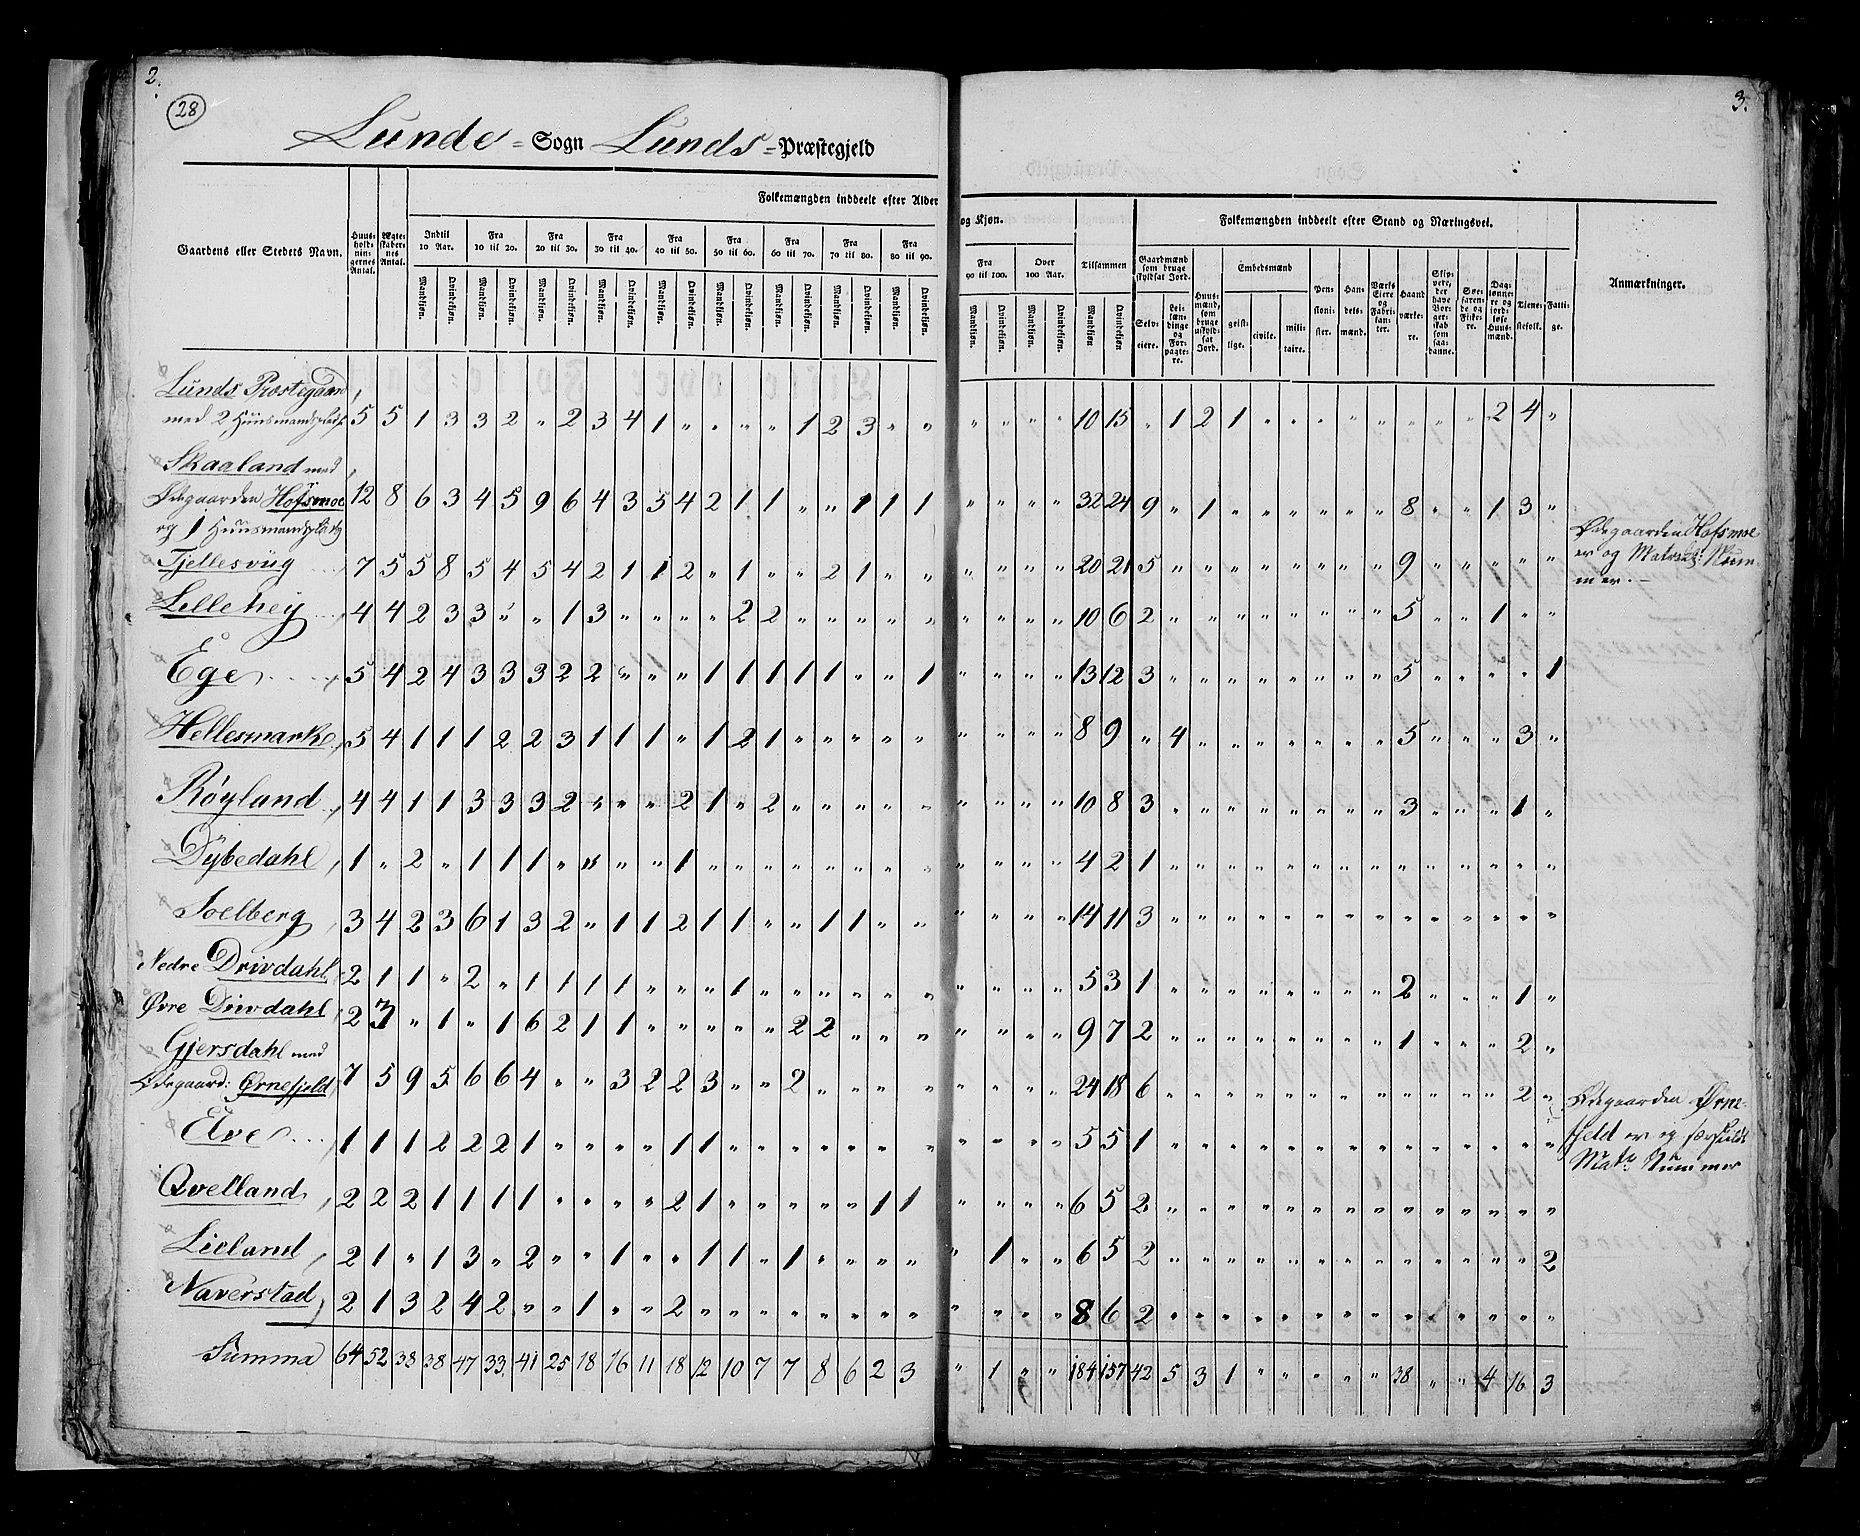 2.
3.
28
Lunde = Sogn Lunds = Præstegjeld
Gaardens eller Stedets Navn.
Huusholdningernes Antal.
Ægteskabernes Antal.
Folkemængden inddeelt efter Alder og Kjøn.
Indtil 10 Aar. Fra 10 til 20. Fra 20 til 30. Fra 30 til 40. Fra 40 til 50. Fra 50 til 60. Fra 60 til 70. Fra 70 til 80. Fra 80 til 90. Fra 90 til 100. Over 100 Aar. Tilsammen
Mandkjøn. Qvindekjøn. Mandkjøn. Qvindekjøn. Mandkjøn. Qvindekjøn. Mandkjøn. Qvindekjøn. Mandkjøn. Qvindekjøn. Mandkjøn. Qvindekjøn. Mandkjøn. Qvindekjøn. Mandkjøn. Qvindekjøn. Mandkjøn. Qvindekjøn. Mandkjøn. Qvindekjøn. Mandkjøn. Qvindekjøn. Mandkjøn. Qvindekjøn
Folkemængden inddeelt efter Stand og Næringsvei.
Gaardmænd som bruge skyldsat Jord.
Selveiere.
Leilændinge og Forpagtere.
Huusmænd, som bruge uskyldsat Jord.
Embedsmænd
geistlige. civile. militaire.
Pensionister.
Handelsmænd.
Værks Eiere og Fabrikanter.
Haandværkere.
Skippere, der have Borgerskab som saadanne.
Søefarende og Fiskere.
Daglønnere og jordløse Huusmænd.
Tienestefolk.
Fattige.
Anmærkninger.
Lunds Præstegaard
med 2 Huusmandspladse 5 5 1 3 3 2 " 2 3 4 1 " " " " 1 2 3 " " " " " " 10 15 " 1 2 1 " " " " " " " " 2 4 "
Skaaland med
Ødegaarden Hofsmoe 12 8 6 3 4 5 9 6 4 3 5 4 2 1 1 " " 1 1 1 " " " " 32 24 9 " 1 " " " " " " 8 " " 1 3 "
og 1 Huusmandsplads
Tjellesvüg 7 5 5 8 5 4 5 4 2 1 1 2 " 1 " " 2 1 " " " " " " 20 21 5 " " " " " " " " 9 " " " " "
Lillehey 4 4 2 3 3 " " 1 3 " " " " 2 2 " " " " " " " " " 10 6 2 " " " " " " " " 5 " " 1 " "
Ege 5 4 2 4 3 3 3 2 2 " " " 1 1 1 1 1 " " 1 " " " " 13 12 3 " " " " " " " " 5 " " " " 1
Hellesmark 5 4 1 1 1 2 2 3 1 1 1 " 1 2 1 " " " " " " " " " 8 9 " 4 " " " " " " " 5 " " " 3 "
Røyland 4 4 1 1 3 3 3 2 " " " 2 1 " 2 " " " " " " " " " 10 8 3 " " " " " " " " 3 " " " 1 "
Dybedahl 1 " 2 " 1 1 1 " " " " 1 " " " " " " " " " " " " 4 2 1 " " " " " " " " " " " " " "
Soelberg 3 4 2 3 6 1 3 2 " 1 1 2 1 1 " " 1 1 " " " " " " 14 11 3 " " " " " " " " " " " " " "
Nedre Drivdahl 2 1 1 " 2 " 1 1 1 1 " " " 1 " " " " " " " " " " 5 3 1 " " " " " " " " 2 " " " 1 "
Øvre Drivdahl 2 3 " 1 " 1 6 2 1 1 " " " " " 2 2 " " " " " " " 9 7 2 " " " " " " " " 1 " " " 2 "
Gjersdahl med
Ødegaard: Ørnefjeld 7 5 9 5 6 6 4 " " 3 2 2 3 " " 2 " " " " " " " " 24 18 6 " " " " " " " " " " " " 2 "
Elve 1 1 1 2 2 2 1 " " " " 1 1 " " " " " " " " " " " 5 5 1 " " " " " " " " " " " " " "
Qvelland 2 2 2 1 1 1 1 " " " " 2 1 " " " " " 1 1 " " " " 6 5 2 " " " " " " " " " " " " " "
Lieland 2 1 " 1 3 " 2 " " 1 " " 1 1 " 1 " " " " " 1 " " 6 5 2 " " " " " " " " " " " " " 2
Naverstad 2 1 3 2 4 2 " " 1 " " 2 " " " " " " " " " " " " 8 6 2 " " " " " " " " " " " " " "
Summa 64 52 38 38 47 33 41 25 18 16 11 18 12 10 7 7 8 6 2 3 " 1 " " 184 157 42 5 3 1 " " " " " 38 " " 4 16 3
Ødegaarden Hofsmoe
er og Matrikl: Num
mer.
Ødegaarden Ørne-
fjeld er og særskildt
Matr Nummer